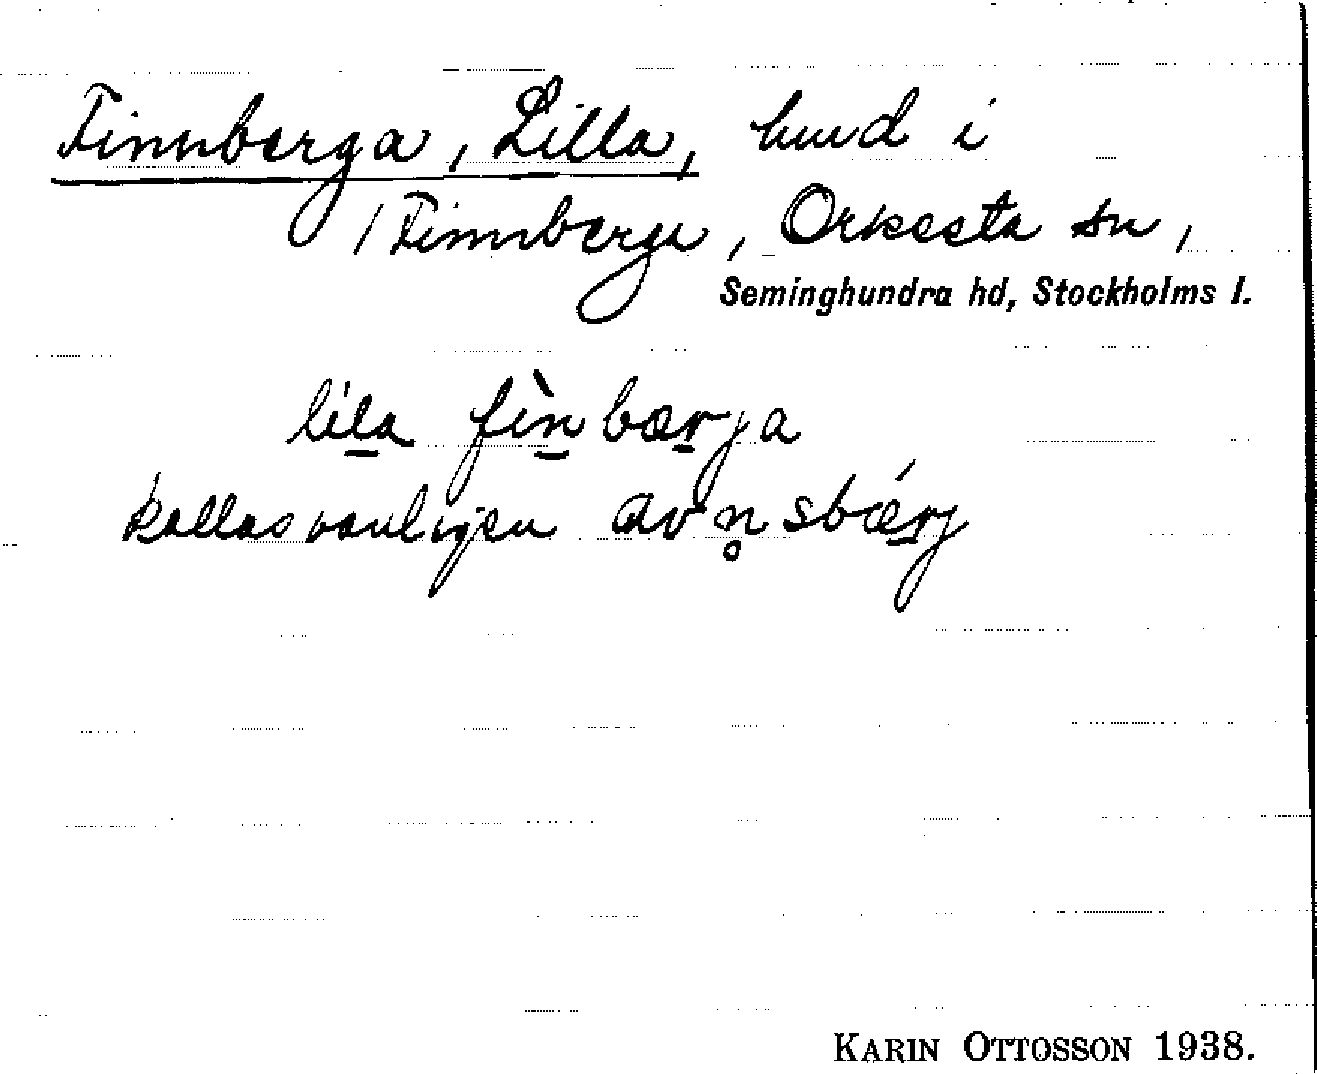 Finnberga, Lilla, hmd i
/ Finnberga, Orkesta sn,
Seminghundra hd, Stockholms l.
líla fìnbærja
kallas vanligen avn̥sbǽrj
KARIN OTTOSSON 1938.